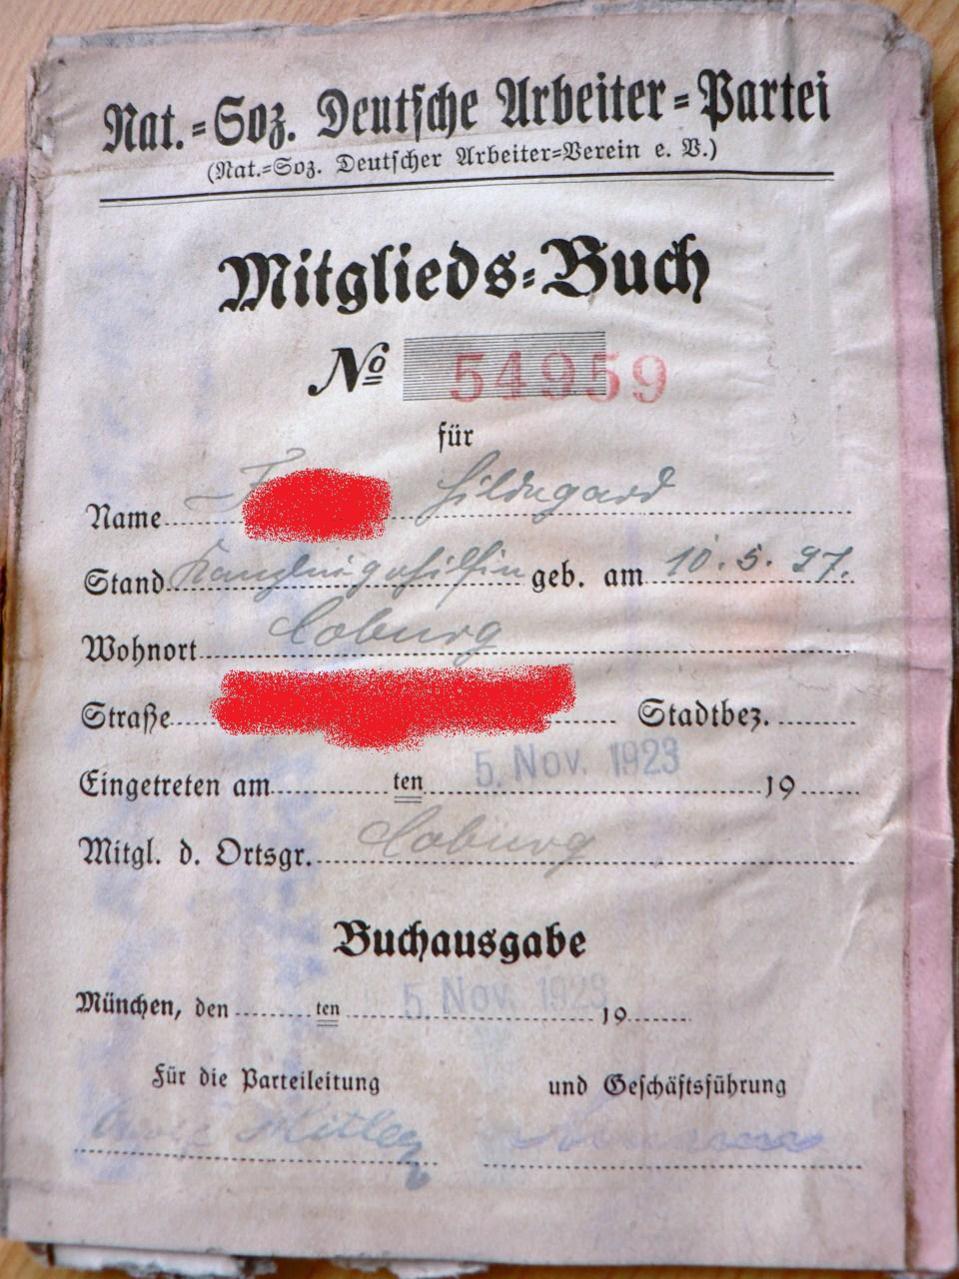 Nat.-Soz. Deutsche Arbeiter-Partei
(Nat.-Soz. Deutscher Arbeiter-Verein e. V.)
Mitglieds-Buch
No 54959
für
Name Hildegard
Stand Kanzleigehilfin geb. am 10. 5. 97.
Wohnort Coburg
Straße Stadtbez.
Eingetreten am ten 5. Nov. 1923 19
Mitgl. d. Ortsgr. Coburg
Buchausgabe
München, den ten 5. Nov. 1923 19
Für die Parteileitung und Geschäftsführung
Adolf Hitler